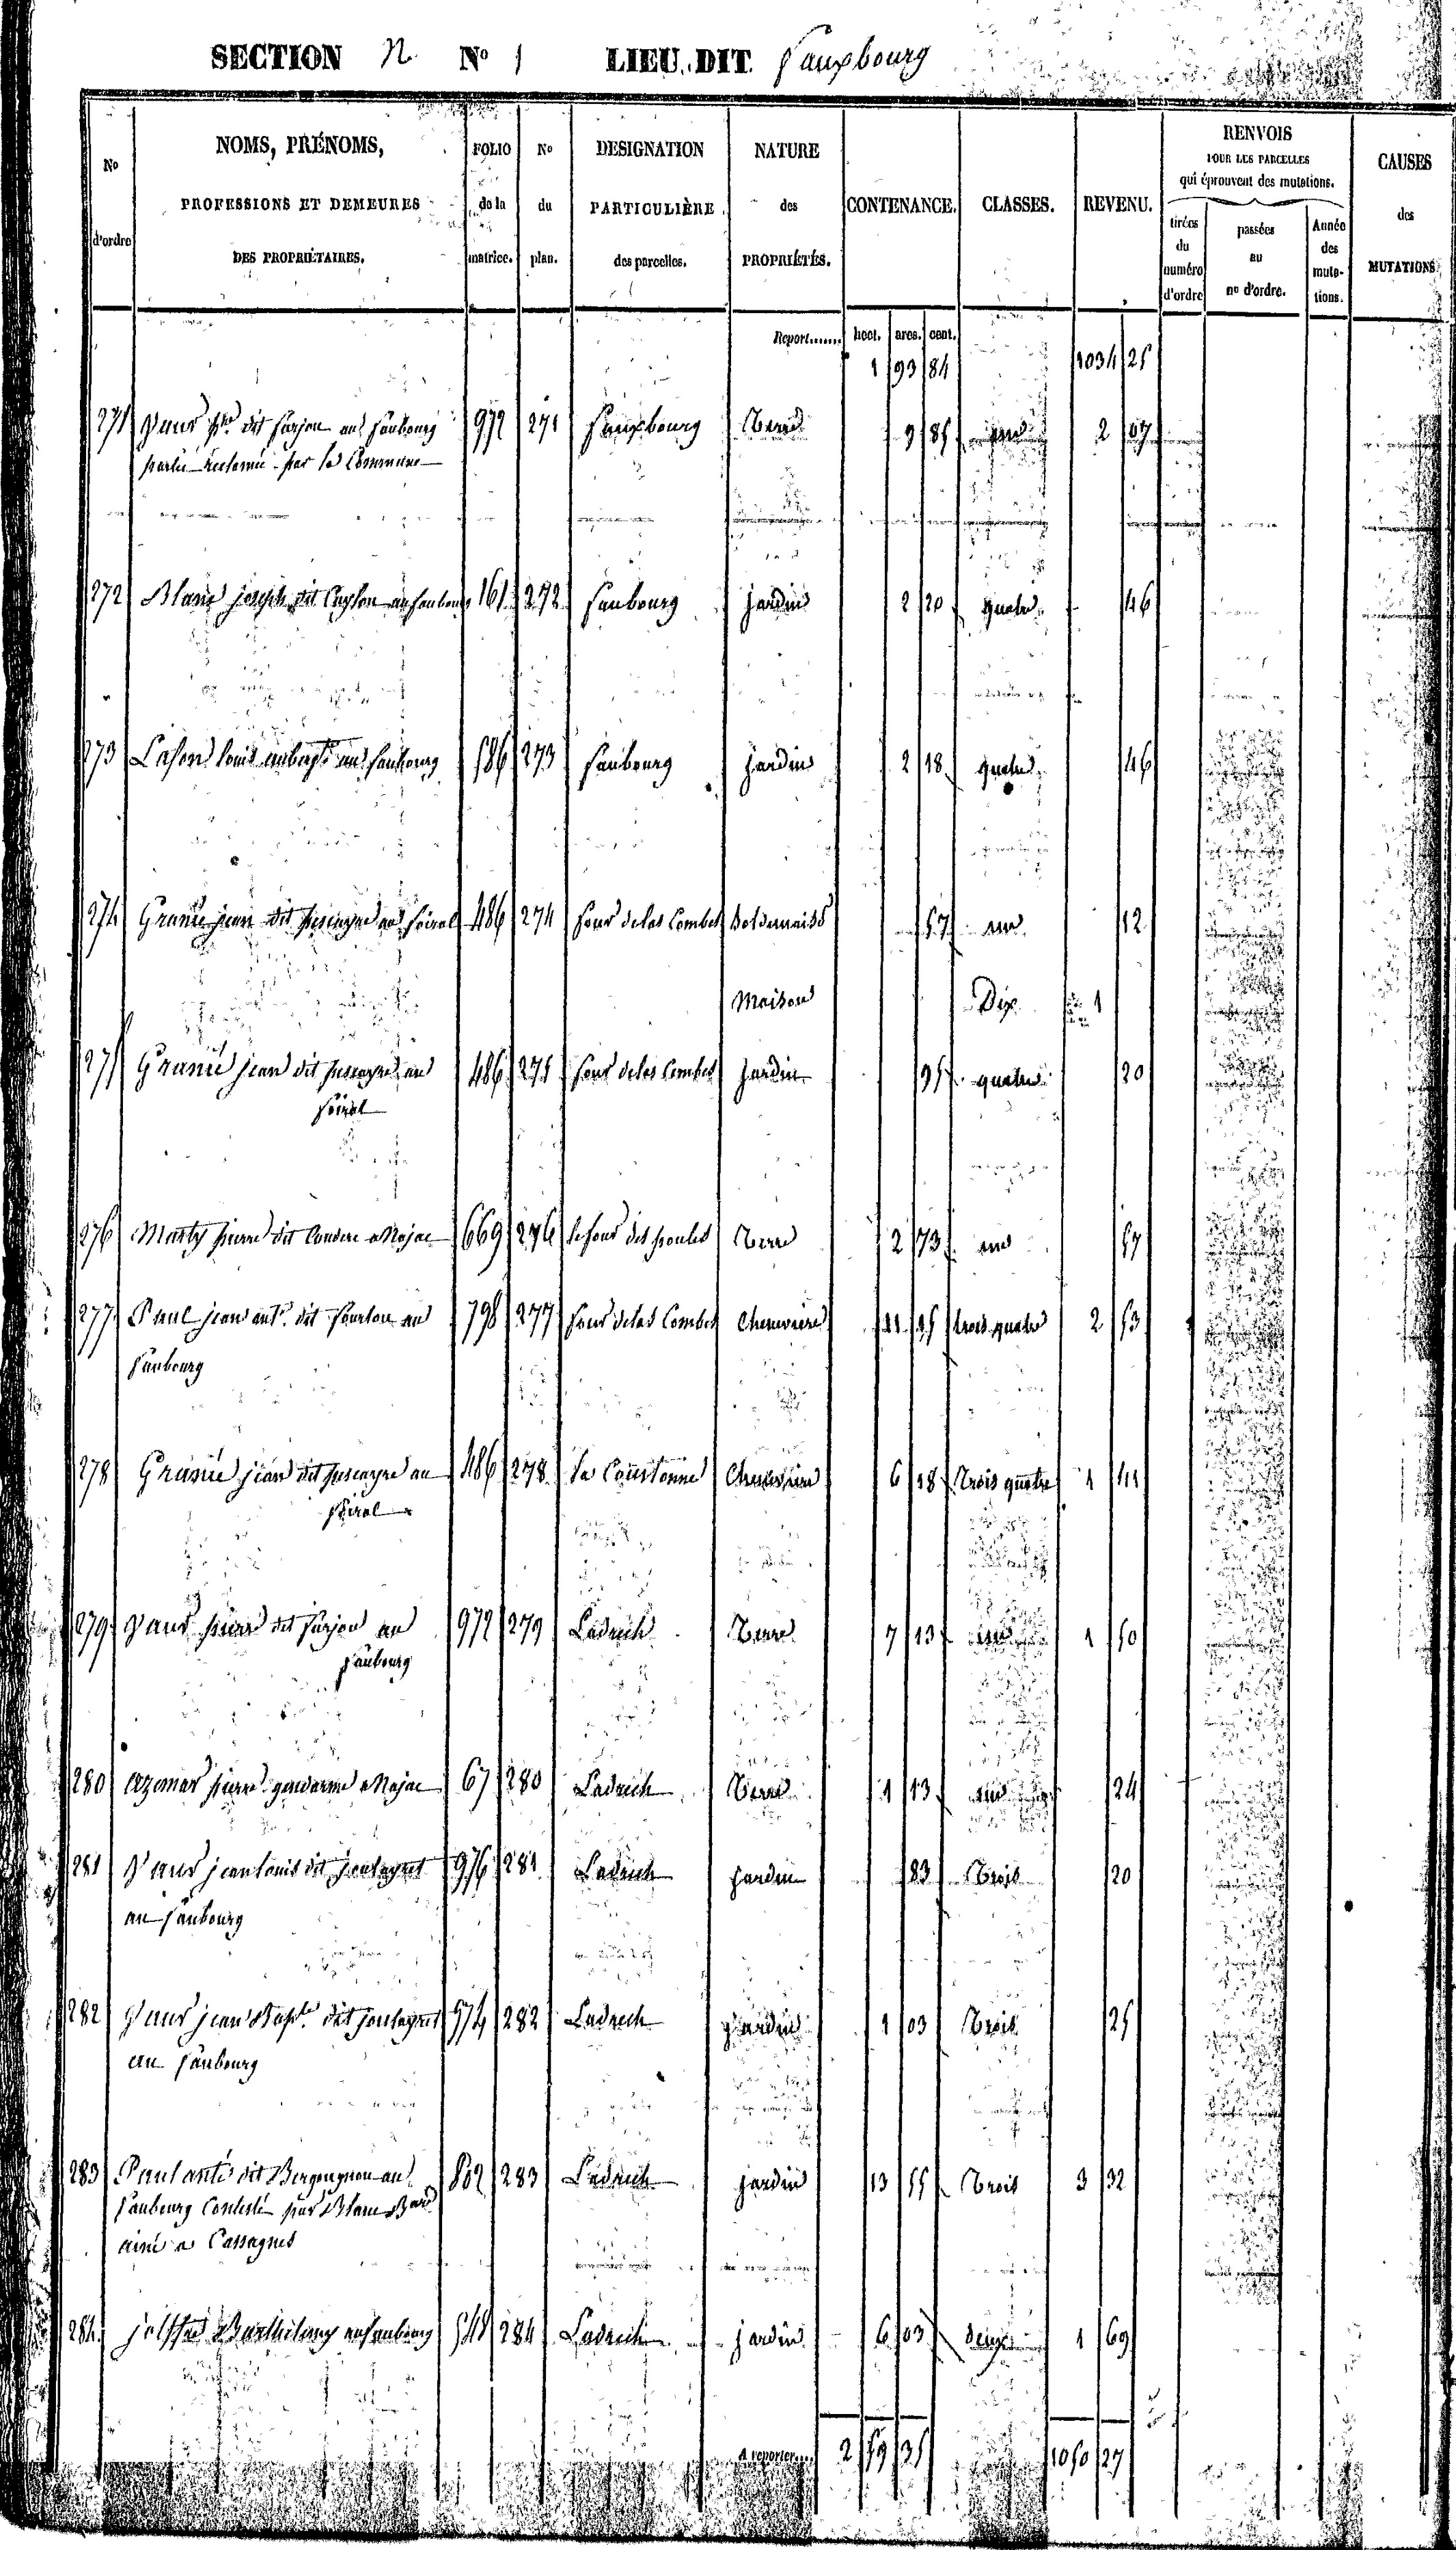 SECTION N N° 1 LIEU DIT Fauxbourg
N° d'ordre
NOMS, PRÉNOMS,
PROFESSIONS ET DEMEURES
DES PROPRIÉTAIRES.
FOLIO de la matrice.
N° du plan.
DESIGNATION
PARTICULIÈRE
des parcelles.
NATURE
des
PROPRIÉTÉS.
CONTENANCE.
CLASSES.
REVENU.
RENVOIS
POUR LES PARCELLES
qui éprouvent des mutations.
tirées du numéro d'ordre
passées au n° d'ordre.
Année des mutations.
CAUSES
des
MUTATIONS
Report....... hect. ares. cent.
1 93 84 1034 25
271 dit au faubourg 972 271 fauxbourg Terre 9 85 2 07
partie par la Commune
272 Blanc joseph dit au faubourg 161 272 faubourg jardin 2 20 quatre 46
273 Louis au faubourg 586 273 faubourg jardin 2 18 quatre 46
274 Granié jean dit au foiral 486 274 four de las Combes Sol de mais 57 une 12
Maison Dix 1
275 Granié jean dit au 486 275 four de las Combes jardin 95 quatre 20
foiral
276 Marty pierre dit a Najac 669 276 Terre 2 73 une 57
277 Paul jean ant. dit au 798 277 four de las Combes Cheneviere 11 25 trois quatre 2 53
faubourg
278 Granié jean dit au 486 278 Cheneviere 6 18 trois quatre 1 41
foiral
279 pierre dit au 972 279 Ladrech Terre 7 13 une 1 50
faubourg
280 Azemar pierre gendarme a Najac 67 280 Ladrech Terre 1 13 une 24
281 jean louis dit 976 281 Ladrech jardin 83 Trois 20
au faubourg
282 jean Bapte. dit 974 282 Ladrech jardin 1 03 Trois 25
au faubourg
283 Paul ante dit Bergougnou au 802 283 Ladrech jardin 13 55 Trois 3 32
faubourg Contesté par Blanc
ainé a Cassagnes
284 Barthelemy au faubourg 548 284 Ladrech jardin 6 03 deux 1 69
A reporter.... 2 59 35 1050 27